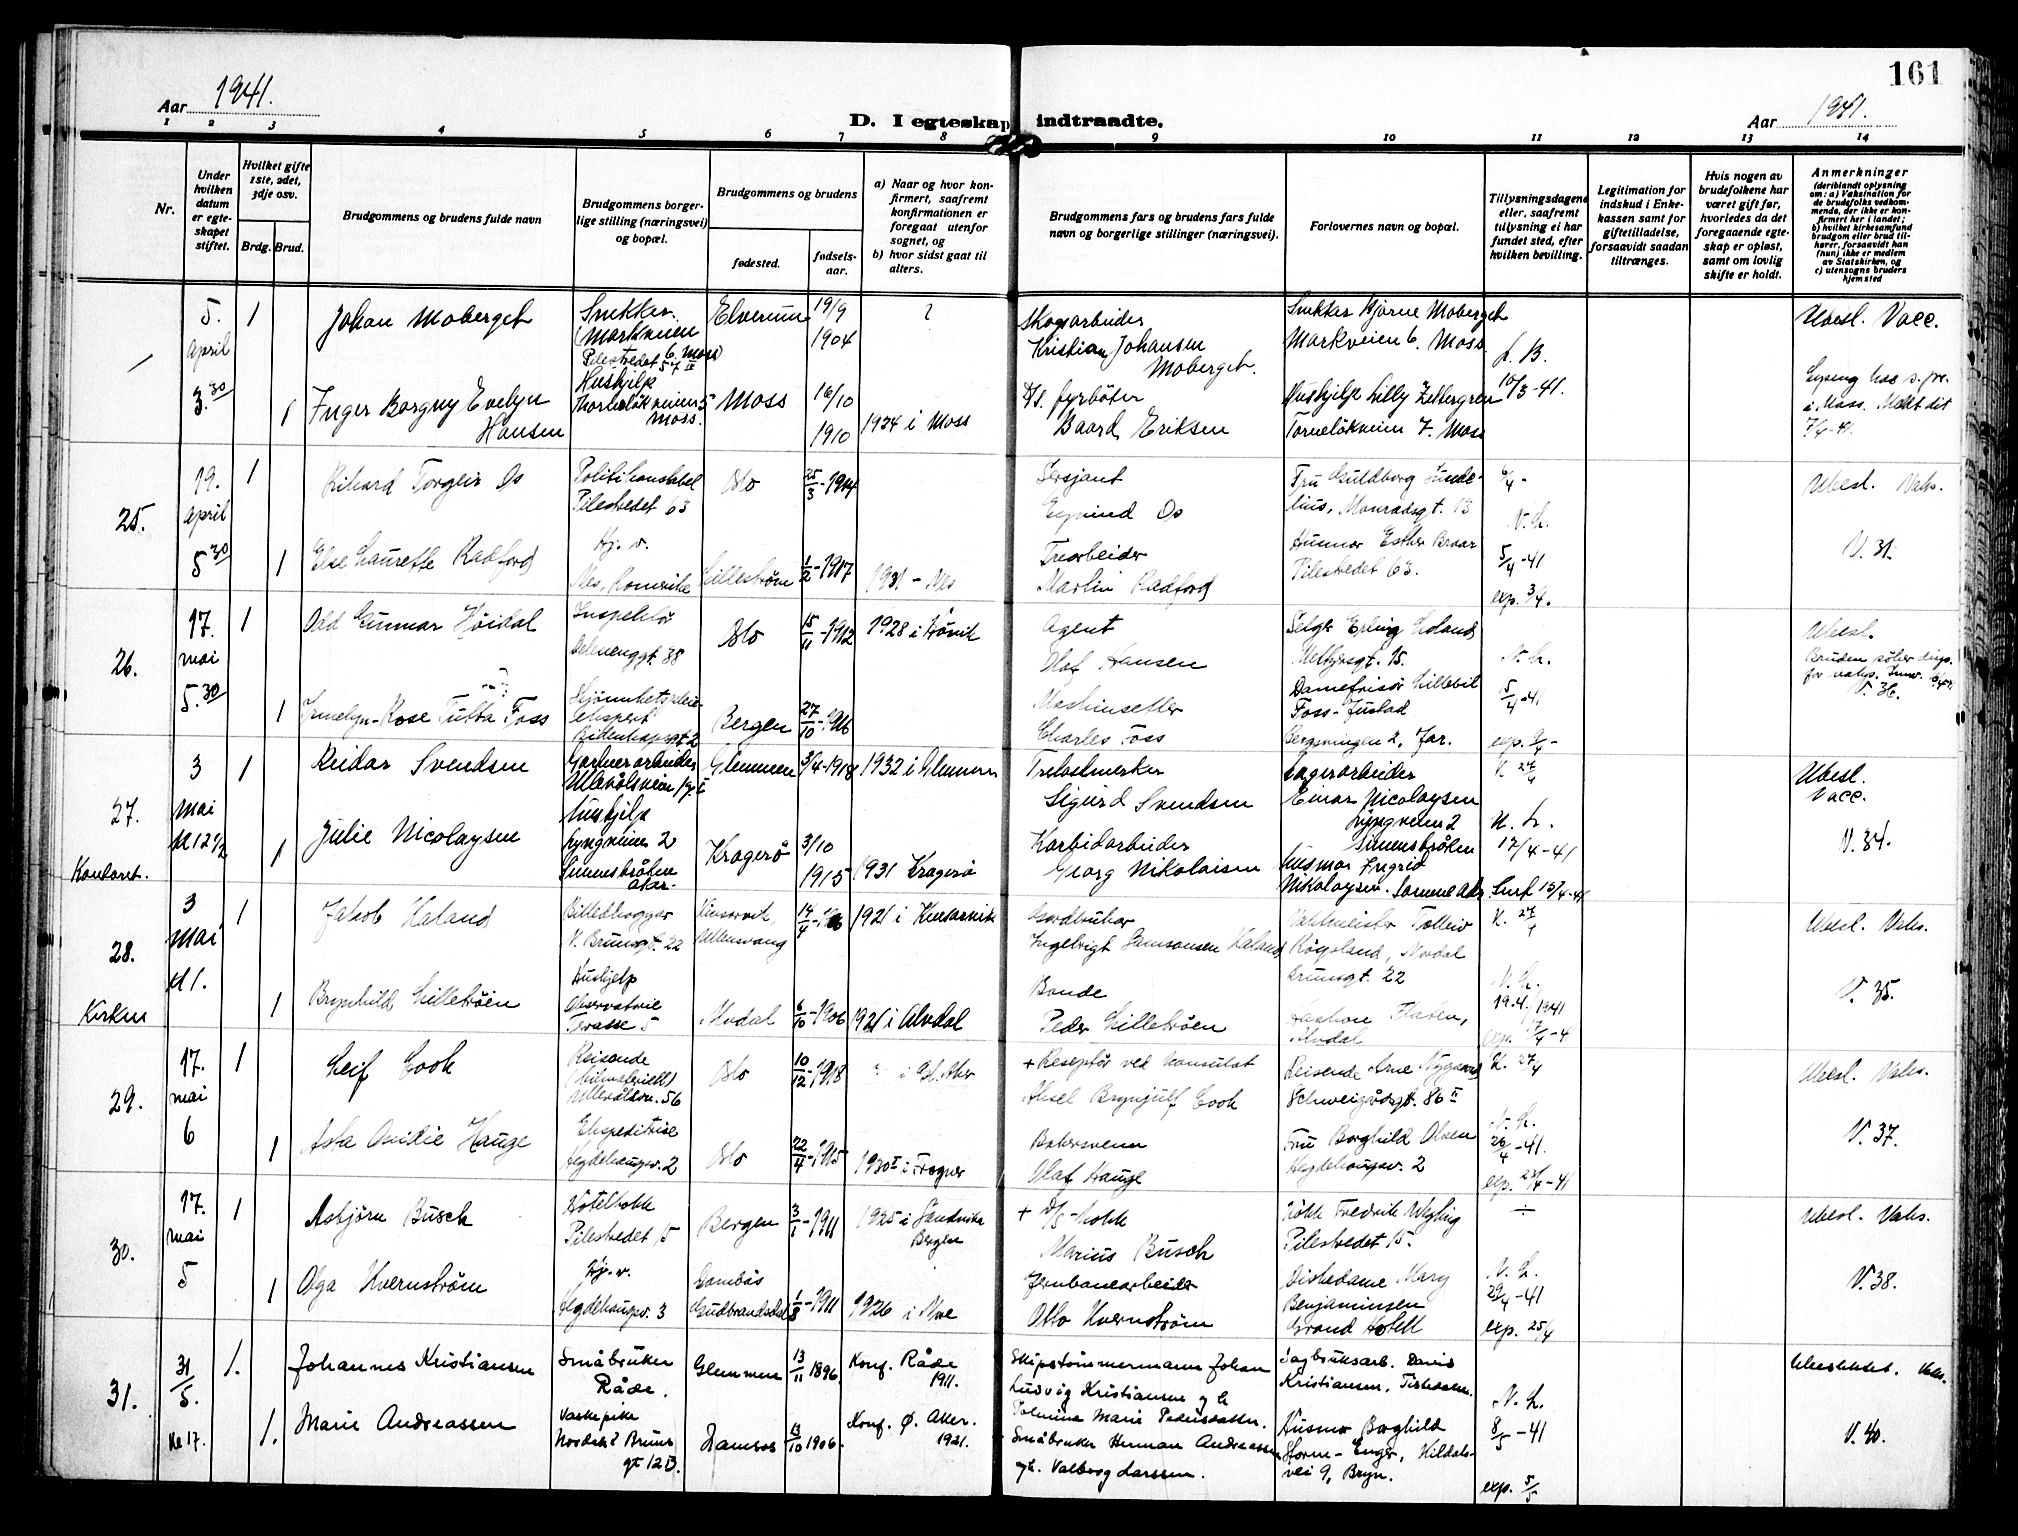 161
Aar 1941.
D. I egteskap indtraadte.
Aar 1941.
1 2 3 4 5 6 7 8 9 10 11 12 13 14
Nr.
Under hvilken datum er egteskapet stiftet.
Hvilket gifte 1ste, 2det, 3dje osv.
Brdg. Brud.
Brudgommens og brudens fulde navn
Brudgommens borgerlige stilling (næringsvei) og bopæl.
Brudgommens og brudens
fødested.
fødselsaar.
a) Naar og hvor konfirmert, saafremt konfirmationen er foregaat utenfor sognet, og
b) hvor sidst gaat til alters.
Brudgommens fars og brudens fars fulde navn og borgerlige stillinger (næringsvei).
Forlovernes navn og bopæl.
Tillysningsdagene eller, saafremt tillysning ei har fundet sted, efter hvilken bevilling.
Legitimation for indskud i Enkekassen samt for giftetilladelse, forsaavidt saadan tiltrænges.
Hvis nogen av brudefolkene har været gift før, hvorledes da det foregaaende egteskap er opløst, samt om lovlig skifte er holdt.
Anmerkninger
(deriblandt oplysning om: a) Vaksination for de brudefolks vedkommende, der ikke er konfirmert her i landet; b) hvilket kirkesamfund brudgom eller brud tilhører, forsaavidt han (hun) ikke er medlem av Statskirken, og c) utensogns bruders hjemsted
5. april 3.30
1 Johan Moberget
Snekker Markveien 6. Moss
Pilestredet 57 II
Elverum 19/9 1904
?
Skogsarbeider Kristian Johansen Moberget.
Snekker Bjarne Moberget Markveien 6. Moss
L. B.
10/3-41.
Ubesl. Vacc.
1 Inger Borgny Evelyn Hansen
Hushjelp Moss.
Moss 16/10 1910
1924 i Moss
D/s. fyrbøter Baard Eriksen
Hushjelp Lilly Zettergren 7. Moss
25.
19. april 5 30
1 Rikard Torgeir Os
Politikonstabel Pilestredet 63
Oslo 25/3-1914
Sersjant Eyvind Os
Fru Guldborg
Monradsgt. 13
6/4 -
N. L.
Ubesl. Vaks.
1 Else Laurette Radford
Hj. v.
Nes, Romerike
Lillestrøm 1/2-1917
1931 - Nes
Trearbeider Martin Radford
Husmor Esther Braar
Pilestredet 63.
5/4-41
exp. 3/4.
V. 31.
26.
17. mai 5.30
1 Odd Gunnar Høidal
Inspektør
Delenenggt. 38
Oslo 15/11-1912
1928 i Høvik
Agent Olaf Hansen
Selger Erling Loland
15.
N. L.
Ubesl.
Bruden søker disp.
V. 36.
1 Irmelyn-Rose Tutta Foss
Skjønnhetspleie ekspert
Bergen 27/10-1916
Maskinsetter Charles Foss
Damefrisør Lillebil Foss-Justad
2, Jar.
5/4-41
27.
3 mai kl 12 1/2
Kontoret.
1 Reidar Svendsen
Gartnerarbeider
Glemmen 3/4-1918
1932 i Glemmen
Trelastmerker Sigurd Svendsen
Lagerarbeider Einar Nicolaysen Lyngveien 2 Simensbråten
K 27/4
Ubesl. Vacc.
1 Julie Nicolaysen
Hushjelp Lyngveien 2 Simensbråten Aker.
Kragerø 3/10 1915
1931 Kragerø
Karbidarbeider Georg Nikolaisen
Husmor Ingrid Nikolaysen. Samme adr.
N. L.
17/4-41
V. 34.
28.
3 mai kl 1.
Kirken
1 Jakob Haland
Billedhogger
V. Brunsgt. 22
Kinsarvik, Ullensvang
14/4-1906
1921 i Kinsarvik
Gardbruker Ingebrigt Samsonsen Haland
Vaktmeister Tolleiv Røgsland, Nordal Brunsgt. 22
K. 27/4
Ubesl. Vaks.
1 Brynhild Lillebrøen
Hushjelp Observatorie Terasse 5
Alvdal 6/10-1906
1921 i Alvdal
Bonde Peder Lillebrøen
Alvdal
N. L.
19.4.1941
V. 35.
29.
17. mai 6
1 Leif Cook
Reisende
Ullevålsv. 56
Oslo 10/12-1918
? i Gl. Aker
+ Reseptor ved Konsulat Aksel Brynjulf Cook
Reisende Arne Nygaard
Schweigårdsgt. 86 II
K. 27/4
Ubesl. Vaks.
1 Asta Ovidie Hauge
Ekspeditrise
Hegdehaugsv. 2
Oslo 22/4-1915
1930 i Frogner
Bakersvenn Olaf Hauge
Fru Borghild Olsen
Hegdehaugsv. 2
N. L.
26/4-41.
V. 37.
30.
17. mai 5
1 Asbjørn Busch
Hotelkokk
Pilestredet 15
Bergen 3/1-1911
1925 i Sandvika Bergen
+ D/s-kokk Marius Busch
Kokk Fredrik
Pilestredet 15.
÷
Ubesl. Vaks.
1 Olga Kvernstrøm
Hj. v.
Hegdehaugsv. 3
Dombås Gudbrandsdal
1/8-1911
1926 i
Jernbanearbeider Otto Kvernstrøm
Diskedame Mary Benjaminsen
Grand Hotell
N. L.
29/4-41
exp. 25/4
V. 38.
31.
31/5. kl 17.
1. Johannes Kristiansen
Småbruker Råde.
Glemmen 13/11 1896
Konf. Råde 1911.
Skipstømmermann Johan Ludvig Kristiansen og h. Marie Pedersdatter.
Sagbruksarb. David Kristiansen, Tistedalen.
N. L.
Ubeslektet. Vaks.
1. Marie Andreassen
Vaskepike
Nordahl Bruns gt 12 B.
Namsos 13/10 1906.
Konf. Ø. Aker. 1921.
Småbruker Herman Andreassen og h. Valborg Larssen.
Husmor Borghild Storm-Enger, Hildalsvei 9, Bryn.
8/5-41
exp. 5/5
V. 40.